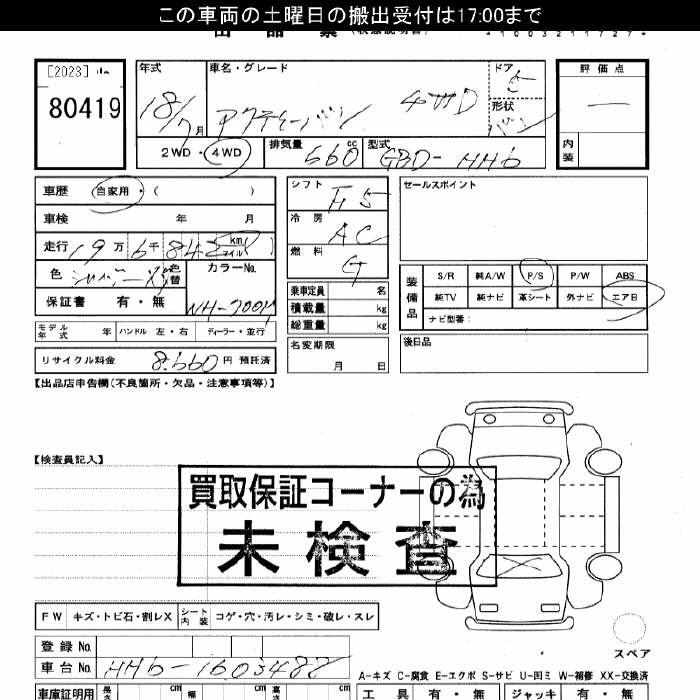 この車両の土曜日の搬出受付は17:00まで
出品票(状態説明書)
*1003211727*
[2023]
80419
年式
18/7月
車名・グレード
アクティーバン 4WD
ドア
5
形状
バン
評価点
—
内装
2WD・4WD
排気量
660cc
型式
GBD-HH6
車歴 自家用・( )
車検 年 月
走行 19万6千842 km マイル
色 シルバーM 色替
カラーNo.
NH-700M
保証書 有・無
モデル年式 年
ハンドル 左・右
ディーラー・並行
リサイクル料金 8,660円 預託済
シフト
F5
冷房
AC
燃料
G
乗車定員 名
積載量 kg
総重量 kg
名変期限
月 日
セールスポイント
装備品
S/R 純A/W P/S P/W ABS
純TV 純ナビ 革シート 外ナビ エアB
ナビ型番:
後日品
【出品店申告欄(不良箇所・欠品・注意事項等)】
【検査員記入】
買取保証コーナーの為
未検査
FW キズ・トビ石・割レX
シート内装 コゲ・穴・汚レ・シミ・破レ・スレ
スペア
登録No.
車台No. HH6-1603487
A-キズ C-腐食 E-エクボ S-サビ U-凹ミ W-補修 XX-交換済
車庫証明用 長さ cm 幅 cm 高さ cm
工具 有・無 ジャッキ 有・無